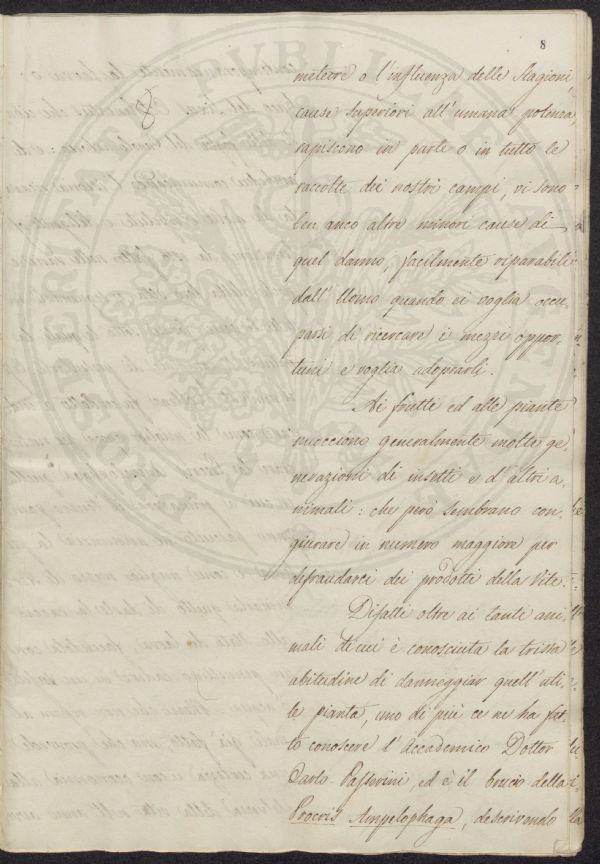 8
8
meteore o l'influenza delle Stagioni,
cause superiori all'umana potenza,
rapiscono in parte o in tutto le
raccolte dei nostri campi, vi sono
ben anco altre minori cause di
quel danno, facilmente riparabili
dall'Uomo quando ei voglia occu-
parsi di ricercare i mezzi oppor-
tuni e voglia adoprarli.
Ai frutti ed alle piante
nuocciono generalmente molte ge-
nerazioni di insetti e d'altri a-
nimali: che però sembrano con-
giurare in numero maggiore per
defraudarci dei prodotti della Vite.
Difatti oltre ai tanti ani-
mali di cui è conosciuta la trista
abitudine di danneggiar quell'uti-
le pianta, uno di più ce ne ha fat-
to conoscere l'Accademico Dottor
Carlo Passerini, ed è il bruco della
Procris Ampelophaga, descrivendo